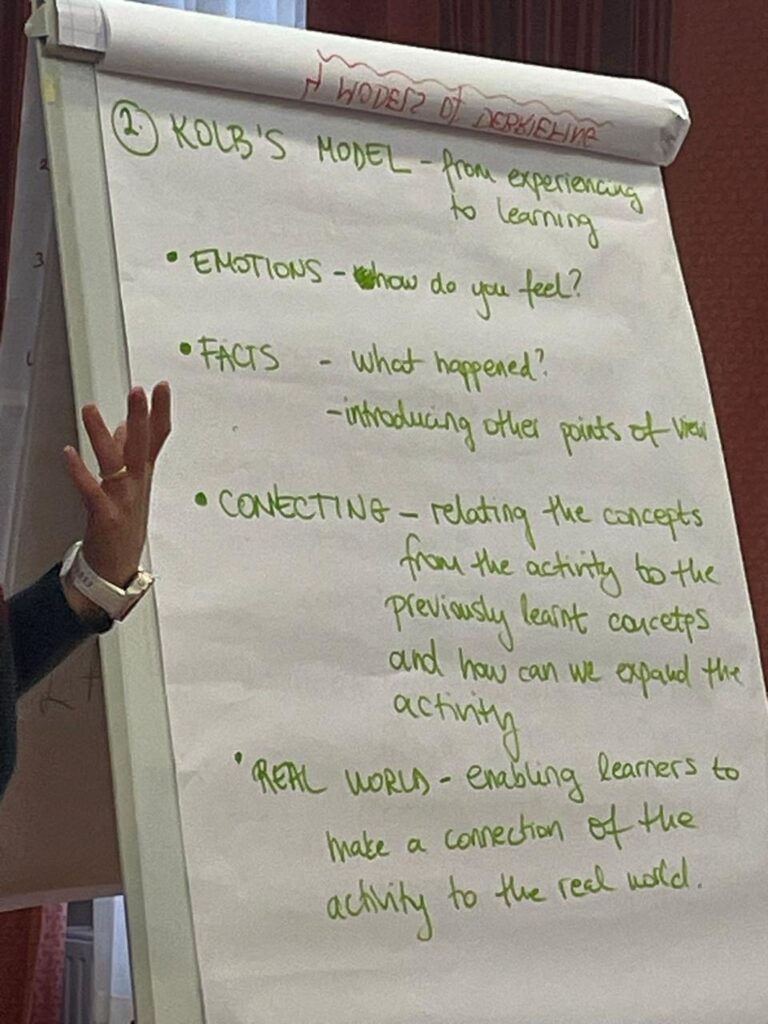 4 MODELS Of DEBRIEFING
2. KOLB'S MODEL - from experiencing
to learning
• EMOTIONS - how do you feel?
• FACTS - what happened?
- introducing other points of view
• CONECTING - relating the concepts
from the activity to the
previously learnt concetps
and how can we expand the
activity
• REAL WORLD - enabling learners to
make a connection of the
activity to the real world.
2
3